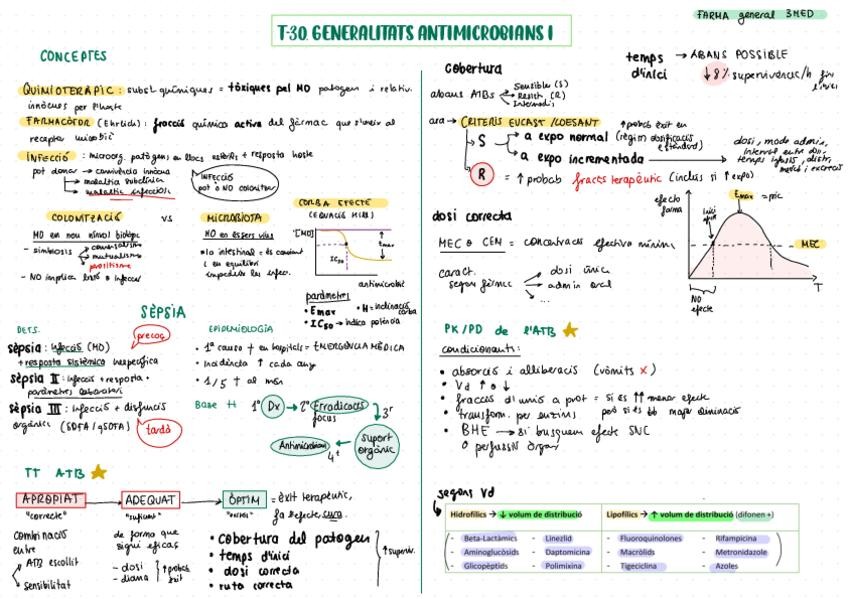 FARMA general 3MED
T-30 GENERALITATS ANTIMICROBIANS I
CONCEPTES
QUIMIOTERÀPIC: subst químiques = tòxiques pel MO patogen i relativ.
innòcues per l'hoste
FARMACÒFOR (Ehrlich): fracció química activa del fàrmac que s'uneix al
receptor microbià
INFECCIÓ: microorg. patògens en llocs estèrils + resposta hoste
pot donar → convivència innòcua
→ malaltia subclínica
→ malaltia infecciosa
INFECCIÓ
pot o NO colonitzar
COLONITZACIÓ
VS
MICROBIOTA
MO en nou nínxol biològic
- simbiosis
mutualisme
paràsitisme
- NO implica lesió o infecció
MO en éssers vius
la intestinal = és constant
i en equilibri
CORBA EFECTE
(EQUACIÓ HILL)
[MO]
Emax
IC50
antimicrobià
paràmetres
• Emax
• H = inclinació corba
• IC50 → indica potència
SÈPSIA
DEFS.
sèpsia: infecció (MO)
+ resposta sistèmica inespecífica
precoç
sèpsia II: infecció + resposta +
paràmetres laboratori
sèpsia III: infecció + disfunció
orgànica (SOFA/qSOFA)
tardà
EPIDEMIOLOGIA
• 1ª causa † en hospitals = EMERGÈNCIA MÈDICA
• incidència ↑ cada any
• 1/5 † al món
Base tt
1º Dx → 2º Erradicació focus
3r
Suport orgànic
4t
Antimicrobià
TT ATB
APROPIAT
ADEQUAT
ÒPTIM
"correcte"
"suficient"
= èxit terapèutic,
combinació
entre
ATB escollit
sensibilitat
de forma que
sigui eficaç
- dosi
- diana
↑ probab èxit
• cobertura del patogen
• temps d'inici
• dosi correcta
• ruta correcta
↑ superviv.
cobertura
abans ATBs
Sensible (S)
Resist. (R)
Intermedi
ara → CRITERIS EUCAST/COESANT
↑ probab èxit en
S
a expo normal (règim dosificació estàndard)
a expo incrementada
dosi, mode admin,
interval entre dosi,
temps infusió, distr,
metab i excreció
R
= ↑ probab fracàs terapèutic (inclús si ↑ expo)
temps
d'inici
→ ABANS POSSIBLE
↓ 8% supervivència/h fins
l'inici
dosi correcta
MEC o CEM = concentració efectiva mínima
caract.
segons fàrmac
dosi única
admin oral
...
efecte
farma
Inici efecte
Emax = pic
MEC
T
NO
efecte
PK/PD de l'ATB
condicionants:
• absorció i alliberació (vòmits x)
• Vd ↑ o ↓
• fracció d'unió a prot = si és ↑↑ menor efecte
però si és ↓↓ major eliminació
• transform. per enzims
• BHE → si busquem efecte SNC
o perfusió òrgan
segons Vd
Hidrofílics → ↓ volum de distribució
Lipofílics → ↑ volum de distribució (difonen +)
- Beta-Lactàmics - Linezlid - Fluoroquinolones - Rifampicina
- Aminoglucòsids - Daptomicina - Macròlids - Metronidazole
- Glicopèptids - Polimixina - Tigeciclina - Azoles